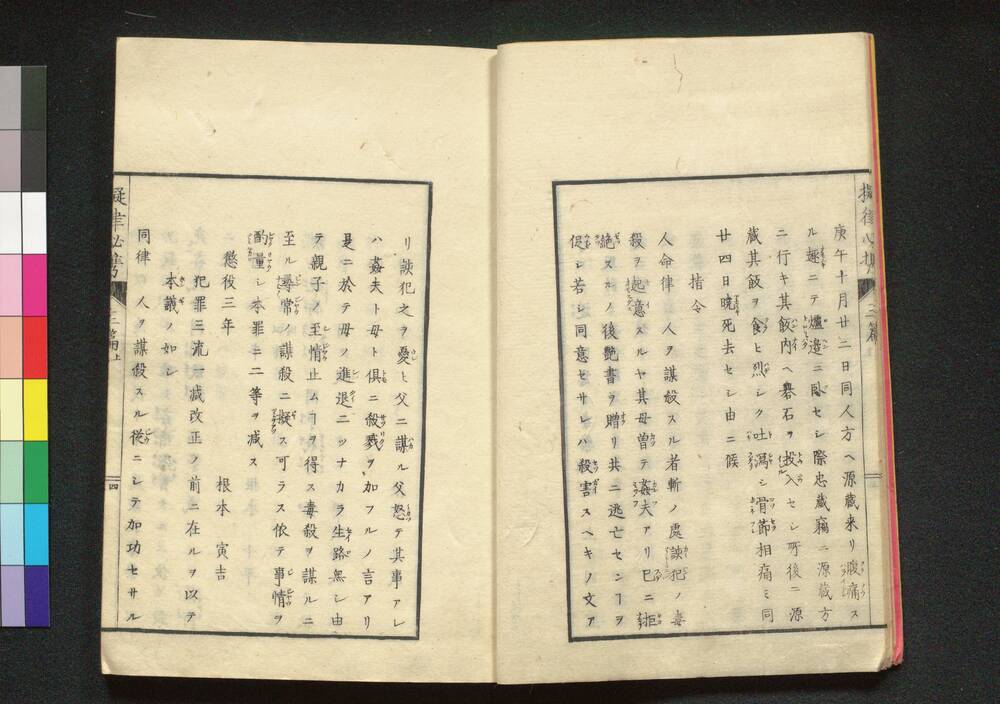 擬律必携 三篇上
庚午十月廿二日同人方ヘ源蔵来リ腹痛ス
ル趣ニテ爐邉ニ臥セシ際忠蔵竊ニ源蔵方
ニ行キ其飯内ヘ礜石ヲ投入セシ所後ニ源
蔵其飯ヲ食ヒ烈シク吐瀉シ骨節相痛ミ同
廿四日暁死去セシ由ニ候
指令
人命律 人ヲ謀殺スル者斬ノ處該犯ノ毒
殺ヲ起意スルヤ其母曽テ姦夫アリ巳ニ拒
絶スルノ後艶書ヲ贈リ共ニ逃亡センヿヲ
促シ若シ同意セサレハ殺害スヘキノ文ア
リ該犯之ヲ憂ヒ父ニ謀ル父怒テ其事アレ
ハ姦夫ト母ト倶ニ殺戮ヲ加フルノ言アリ
是ニ於テ母ノ進退ニツナカラ生路無シ由
テ親子ノ至情止ムヿヲ得ス毒殺ヲ謀ルニ
至ル尋常ノ謀殺ニ擬ス可ラス依テ事情ヲ
酌量シ本罪ニ二等ヲ减ス
懲役三年
根本 寅吉
犯罪三流一减改正ノ前ニ在ルヲ以テ
本議ノ如シ
同律 人ヲ謀殺スル從ニシテ加功セサル
擬律必携 三篇上 四